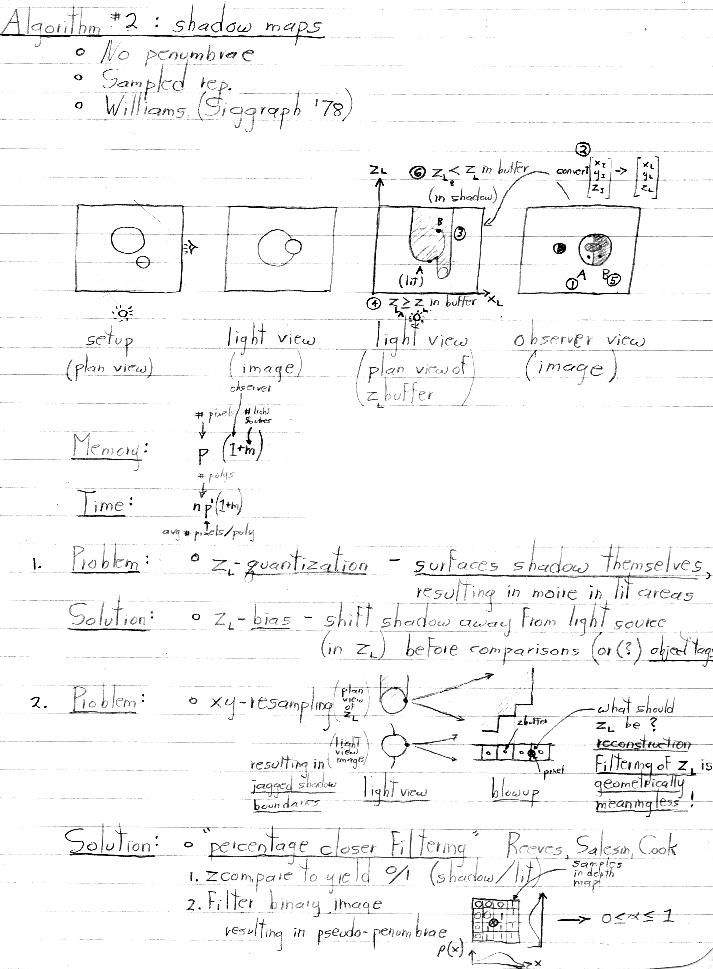 Algorithm #2 : shadow maps
o No penumbrae
o Sampled rep.
o Williams (Siggraph '78)
② convert [x_I y_I z_I] -> [x_L y_L z_L]
Z_L
⑥ Z_L < Z_L in buffer
B
(in shadow)
B
③
A
(lit)
①
A
B
⑤
X_L
④ Z_L ≥ Z_L in buffer
A
setup
(plan view)
light view
(image)
light view
(plan view of
z buffer)
observer view
(image)
observer
# pixels
# light
sources
Memory: P (1+m)
# polys
Time: n p'(1+m)
avg # pixels/poly
1. Problem: o Z_L-quantization - surfaces shadow themselves,
resulting in moire in lit areas
Solution: o Z_L-bias - shift shadow away from light source
(in Z_L) before comparisons (or(?) object tags
2. Problem: o xy-resampling
(plan
view
of
Z_L)
zbuffer
what should
Z_L be ?
reconstruction
Filtering of Z_L is
geometrically
meaningless !
(light
view
image)
pixel
resulting in
jagged shadow
boundaries
light view
blowup
Solution: o "percentage closer Filtering" Reeves, Salesin, Cook
1. zcompare to yield 0/1 (shadow/lit)
samples
in depth
map
2. Filter binary image
resulting in pseudo-penumbrae
→ 0≤α≤ 1
p(x)
x